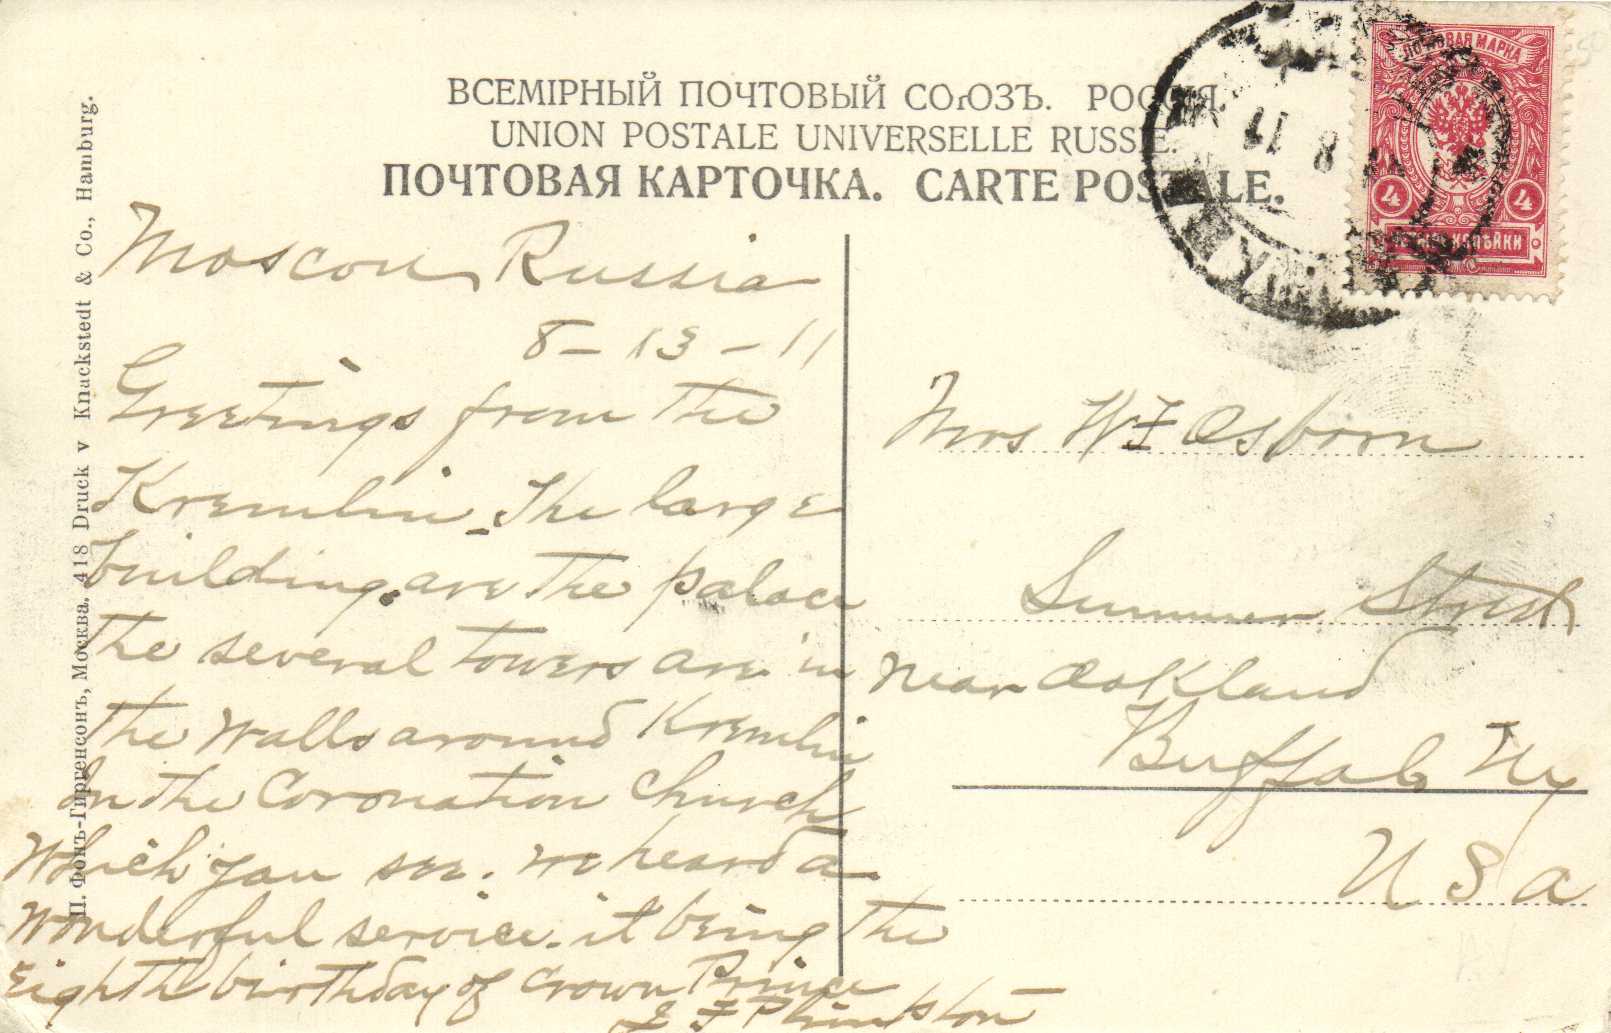 ВСЕМІРНЫЙ ПОЧТОВЫЙ СОЮЗЪ. РОССІЯ.
UNION POSTALE UNIVERSELLE RUSSIE.
ПОЧТОВАЯ КАРТОЧКА. CARTE POSTALE.
П. Фонъ-Гиргенсонъ, Москва. 418 Druck v Knackstedt & Co., Hamburg.
МАРКА
4 4
КОПѢЙКИ
8 11
Moscow Russia
8-13-11
Greetings from the
Kremlin. The large
building are the palace
the several towers are in
the walls around Kremlin
In the Coronation Church
which you see. we heard a
wonderful service. it being the
Eighth birthday of Crown Prince
Mrs W F Osborn
Summer Street
near Oakland
Buffalo Ny
U S a